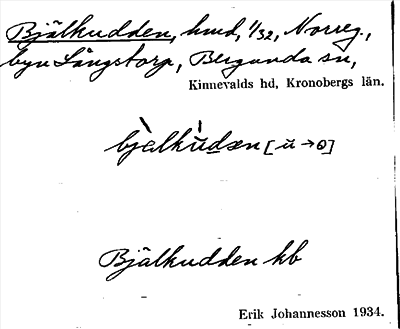 Bjälkudden, hmd, 1/32, Norreg.,
byn Långstorp, Bergunda sn,
Kinnevalds hd, Kronobergs län.
bjalkùdən [ŭ→ɵ]
Bjälkudden kb
Erik Johannesson 1934.